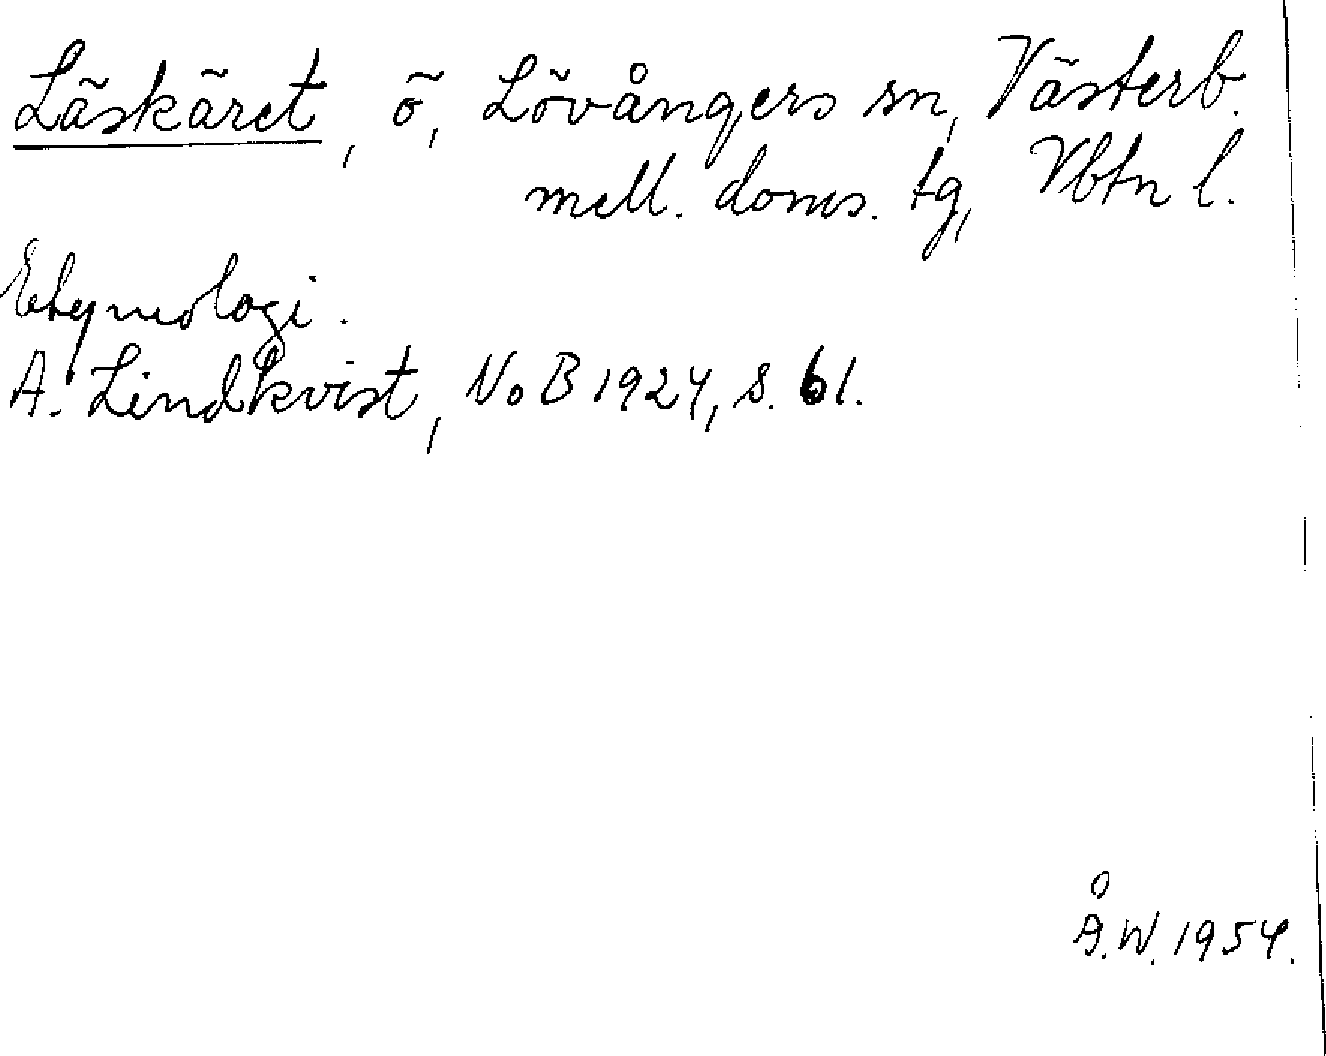 Läskäret, ö, Lövångers sn, Västerb.
mell. doms. tg, Vbtn l.
Etymologi.
A. Lindkvist, NoB 1924, s. 61.
Å.W. 1954.